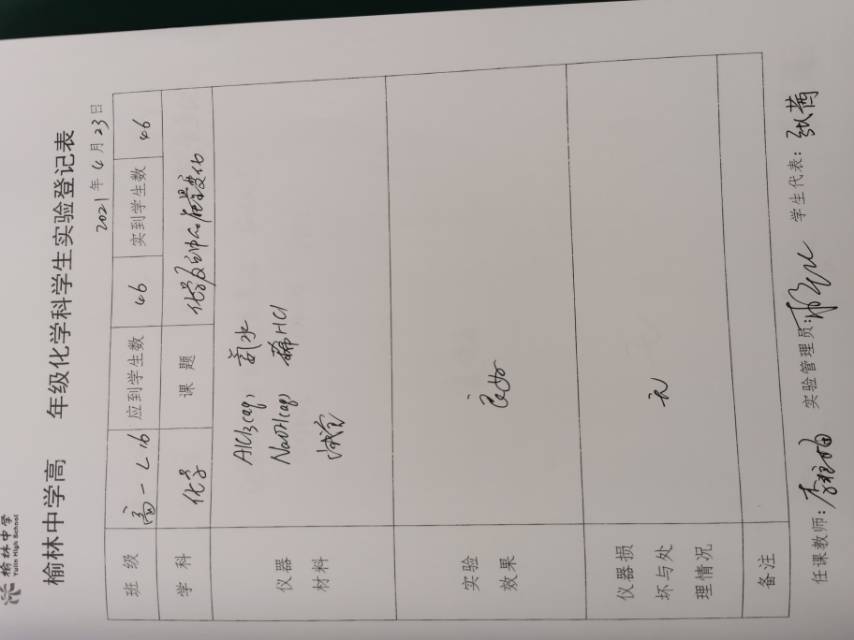 榆林中学
Yulin High School
榆林中学高 年级化学科学生实验登记表
2021年4月23日
班级 高一L16 应到学生数 46 实到学生数 46
学科 化学 课题 化学反应中的能量变化
仪器 AlCl3(aq), 氨水
材料 NaOH(aq), 稀HCl
试管
实验
效果 良好
仪器损
坏与处 无
理情况
备注
任课教师: 实验管理员: 学生代表: 张茜